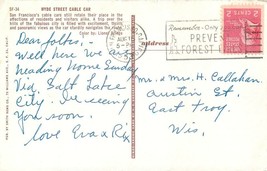 SF-34 HYDE STREET CABLE CAR
San Francisco's cable cars still retain their place in the
affections of residents and visitors alike. A trip over the
hills of the fabulous city is filled with excitement, fascin-
and panoramic views as the car sturdily navigates the
Color by
Dear folks:-
Well here we are
heading home Sunday
Via Salt Lake
City. Be seeing
you soon.
love Eva & Rix
SEP 1
5-PM
CALIF.
address
Remember - Only
PREVENT
FOREST
2 2
Mr. & Mrs. H. Callahan
Austin St.
East Troy
Wis.